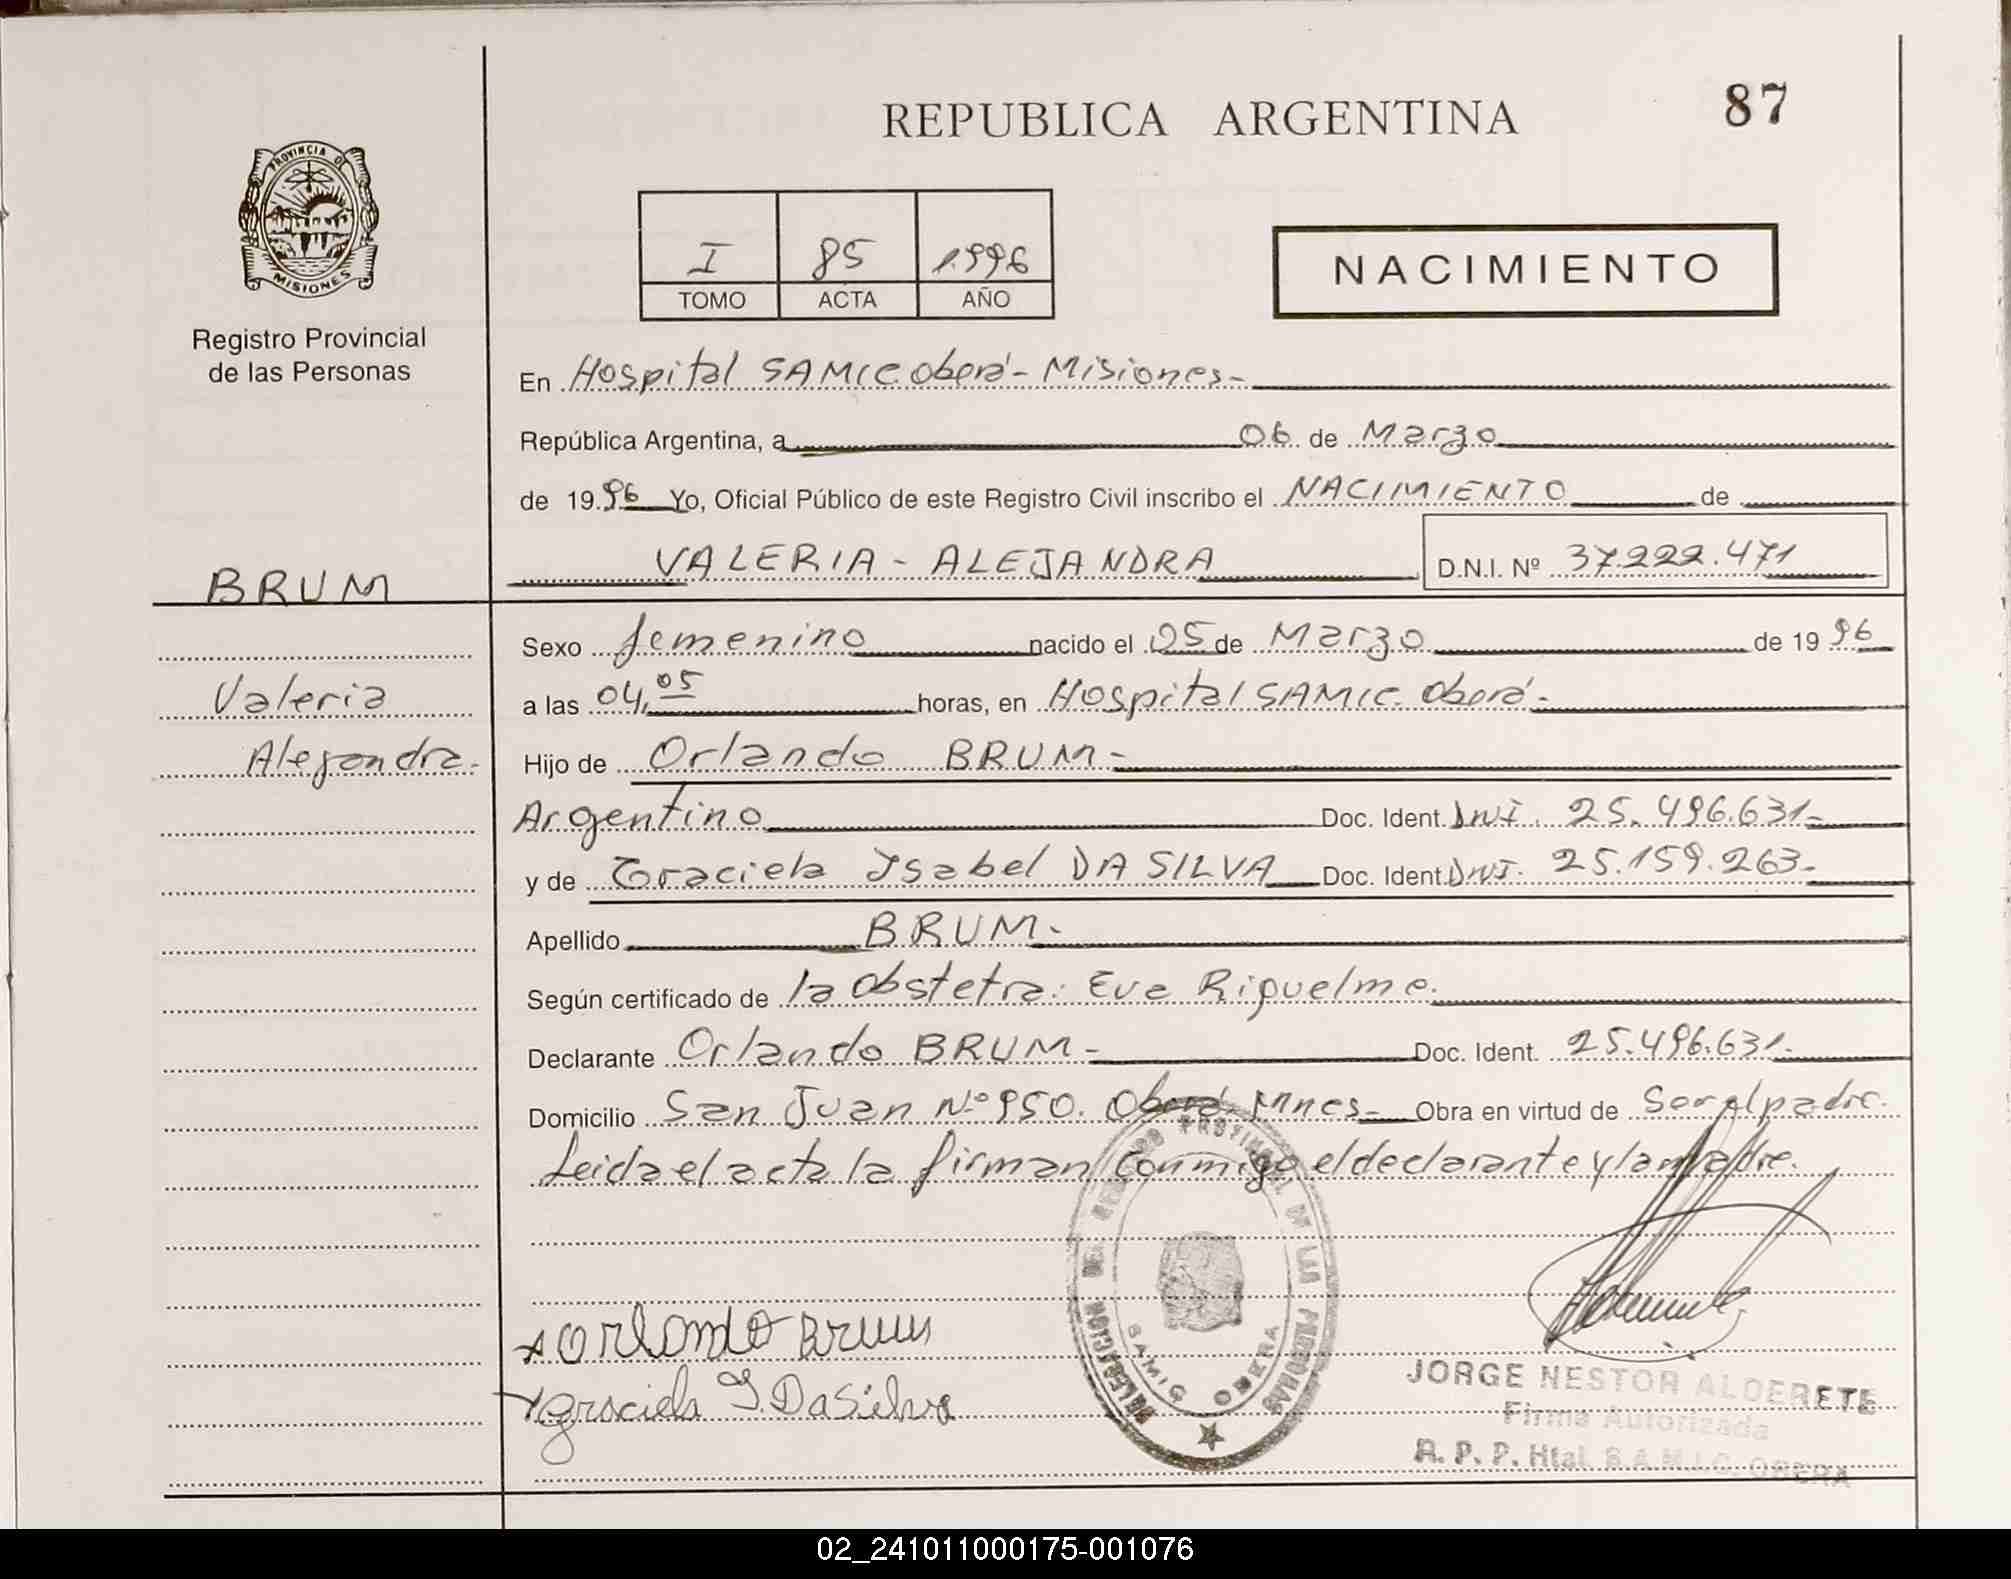 REPUBLICA ARGENTINA
87
PROVINCIA DE
MISIONES
Registro Provincial
de las Personas
I 85 1.996
TOMO ACTA AÑO
NACIMIENTO
En Hospital SAMIC oberá - Misiones -
República Argentina, a 06 de Marzo
de 19 96 Yo, Oficial Público de este Registro Civil inscribo el NACIMIENTO de
VALERIA - ALEJANDRA D.N.I. Nº 37.222.471
BRUM
Valeria
Alejandra.
Sexo femenino nacido el 05 de Marzo de 19 96
a las 04,05 horas, en Hospital SAMIC. Oberá -
Hijo de Orlando BRUM -
Argentino Doc. Ident. DNI. 25.496.631 -
y de Graciela Isabel DA SILVA Doc. Ident. DNI. 25.159.263 -
Apellido BRUM -
Según certificado de la Obstetra: Eva Riquelme.
Declarante Orlando BRUM - Doc. Ident. 25.496.631 -
Domicilio San Juan N.º 950. Oberá Mnes - Obra en virtud de Ser el padre.
Leida el acta la firman conmigo el declarante y la madre.
DELEGACION DEL REGISTRO PROVINCIAL DE LAS PERSONAS
SAMIC OBERA
Orlando Brum
Graciela I. DaSilva
JORGE NESTOR ALDERETE
Firma Autorizada
A. P. P. Htal. S.A.M.I.C. OBERA
02_241011000175-001076